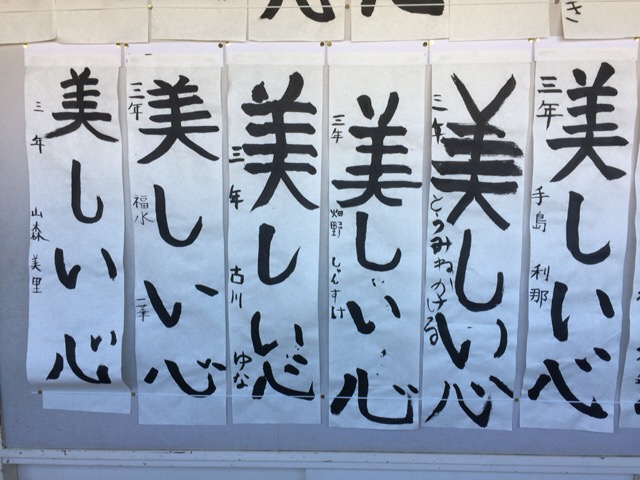 美しい心
三年 山森 美里
美しい心
三年 福水 一華
美しい心
三年 古川 ゆな
美しい心
三年 畑野 しゅんすけ
美しい心
三年 とうみねかける
美しい心
三年 手島 利那